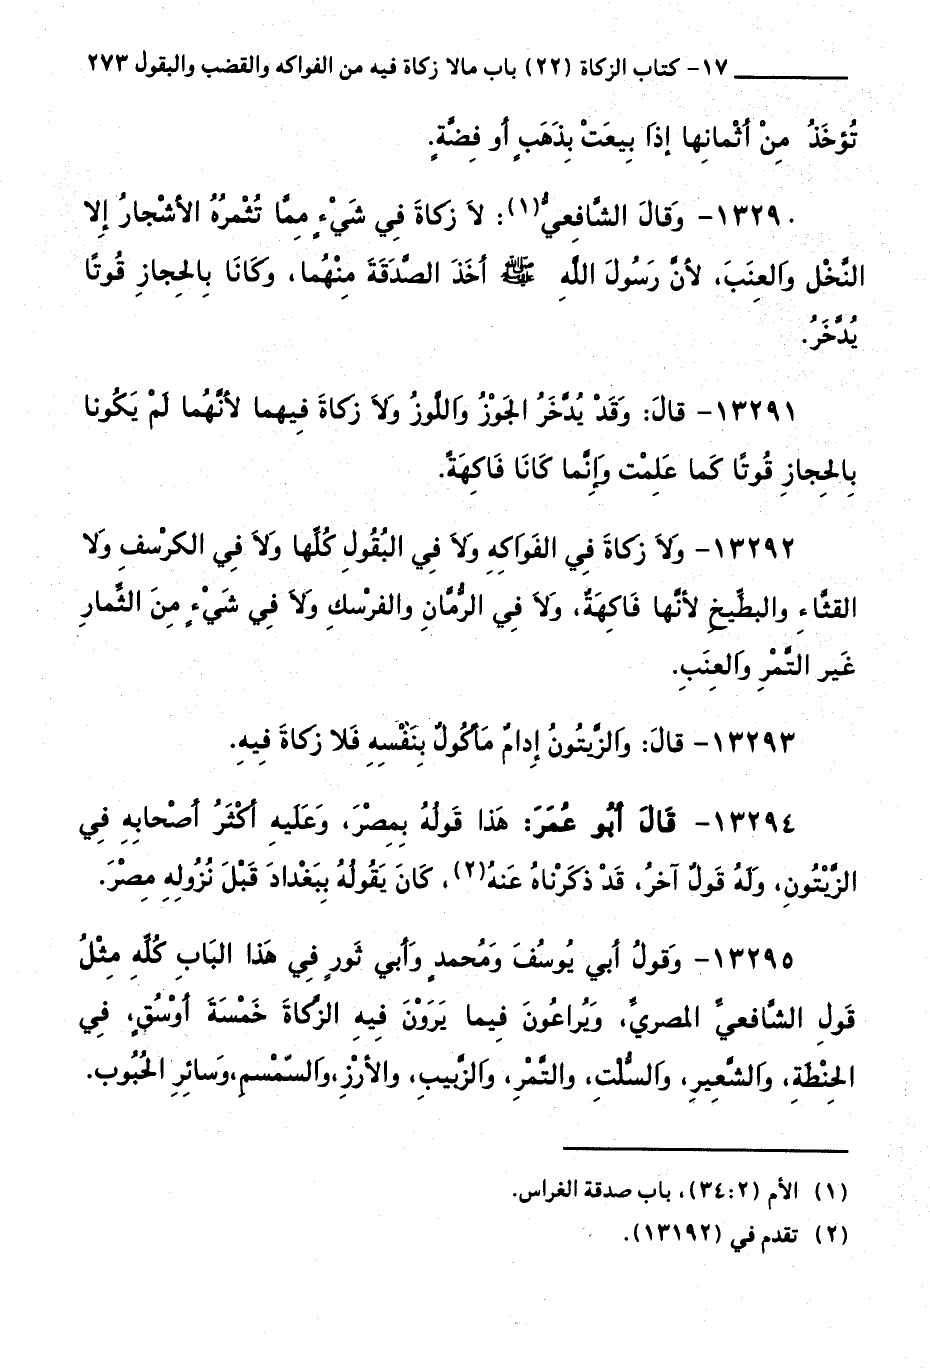 ١٧- كتاب الزكاة (٢٢) باب مالا زكاة فيه من الفواكه والقضب والبقول ٢٧٣
تُؤخَذُ مِنْ أثْمانِها إذَا بِيعَتْ بِذَهَبٍ أو فِضَّةٍ.
١٣٢٩٠- وَقالَ الشَّافِعيُّ(١): لاَ زكاةَ فِي شَيْءٍ مِمَّا تُثْمرُهُ الأشْجارُ إلا
النَّخْل والعِنَبَ، لأنَّ رَسُولَ اللَّهِ ﷺ أخَذَ الصَّدَقَةَ مِنْهُما، وكَانَا بِالحِجازِ قُوتًا
يُدَّخَرُ.
١٣٢٩١- قالَ: وَقَدْ يُدَّخَرُ الجَوْزُ وَاللَّوزُ وَلاَ زكاةَ فِيهما لأنَّهُما لَمْ يَكُونا
بِالحِجازِ قُوتًا كَما عَلِمْت وَإنَّما كَانَا فَاكِهَةً.
١٣٢٩٢- وَلاَ زكاةَ فِي الفَوَاكِهِ وَلاَ فِي البُقُولِ كُلِّها وَلاَ فِي الكرْسفِ وَلا
القثَّاءِ والبطِّيخِ لأنَّها فَاكِهَةٌ، وَلاَ فِي الرُّمَّانِ والفرْسكِ وَلاَ فِي شَيْءٍ مِنَ الثِّمارِ
غَير التَّمْرِ وَالعِنَبِ.
١٣٢٩٣- قالَ: والزَّيتُونُ إدامٌ مَأكُولٌ بِنَفْسِهِ فَلا زكَاةَ فِيهِ.
١٣٢٩٤- قَالَ أبُو عُمَرَ: هَذا قَولُهُ بِمِصْرَ، وَعَلَيهِ أكْثَرُ أصْحابِهِ فِي
الزَّيْتُونِ، وَلَهُ قَولٌ آخرُ، قَدْ ذكَرْناهُ عَنهُ(٢)، كَانَ يَقُولُهُ بِبَغْدادَ قَبْلَ نُزُولِهِ مِصْرَ.
١٣٢٩٥- وَقولُ أبي يُوسُفَ وَمُحمدٍ وَأبي ثَورٍ فِي هَذا البَابِ كُلِّهِ مِثْلُ
قَولِ الشَّافعيِّ المصريِّ، وَيُراعُونَ فِيما يَرَوْنَ فِيهِ الزَّكاةَ خَمْسَةَ أوْسُقٍ، فِي
الحِنْطَةِ، والشَّعِيرِ، وَالسُّلْتِ، والتَّمْرِ، وَالزَّبيبِ، والأرْزِ،وَالسّمْسمِ،وَسائِرِ الحُبُوبِ.
(١) الأم (٣٤:٢)، باب صدقة الغراس.
(٢) تقدم في (١٣١٩٢).